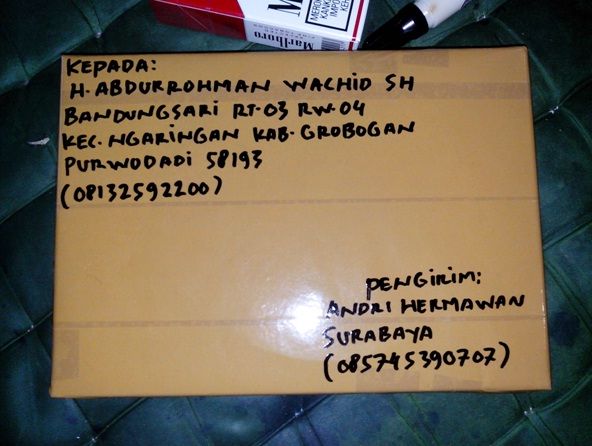 KEPADA:
H. ABDURROHMAN WACHID SH
BANDUNGSARI RT.03 RW.04
KEC. NGARINGAN KAB. GROBOGAN
PURWODADI 58193
(08132592200)
PENGIRIM:
ANDRI HERMAWAN
SURABAYA
(085745390707)
Marlboro